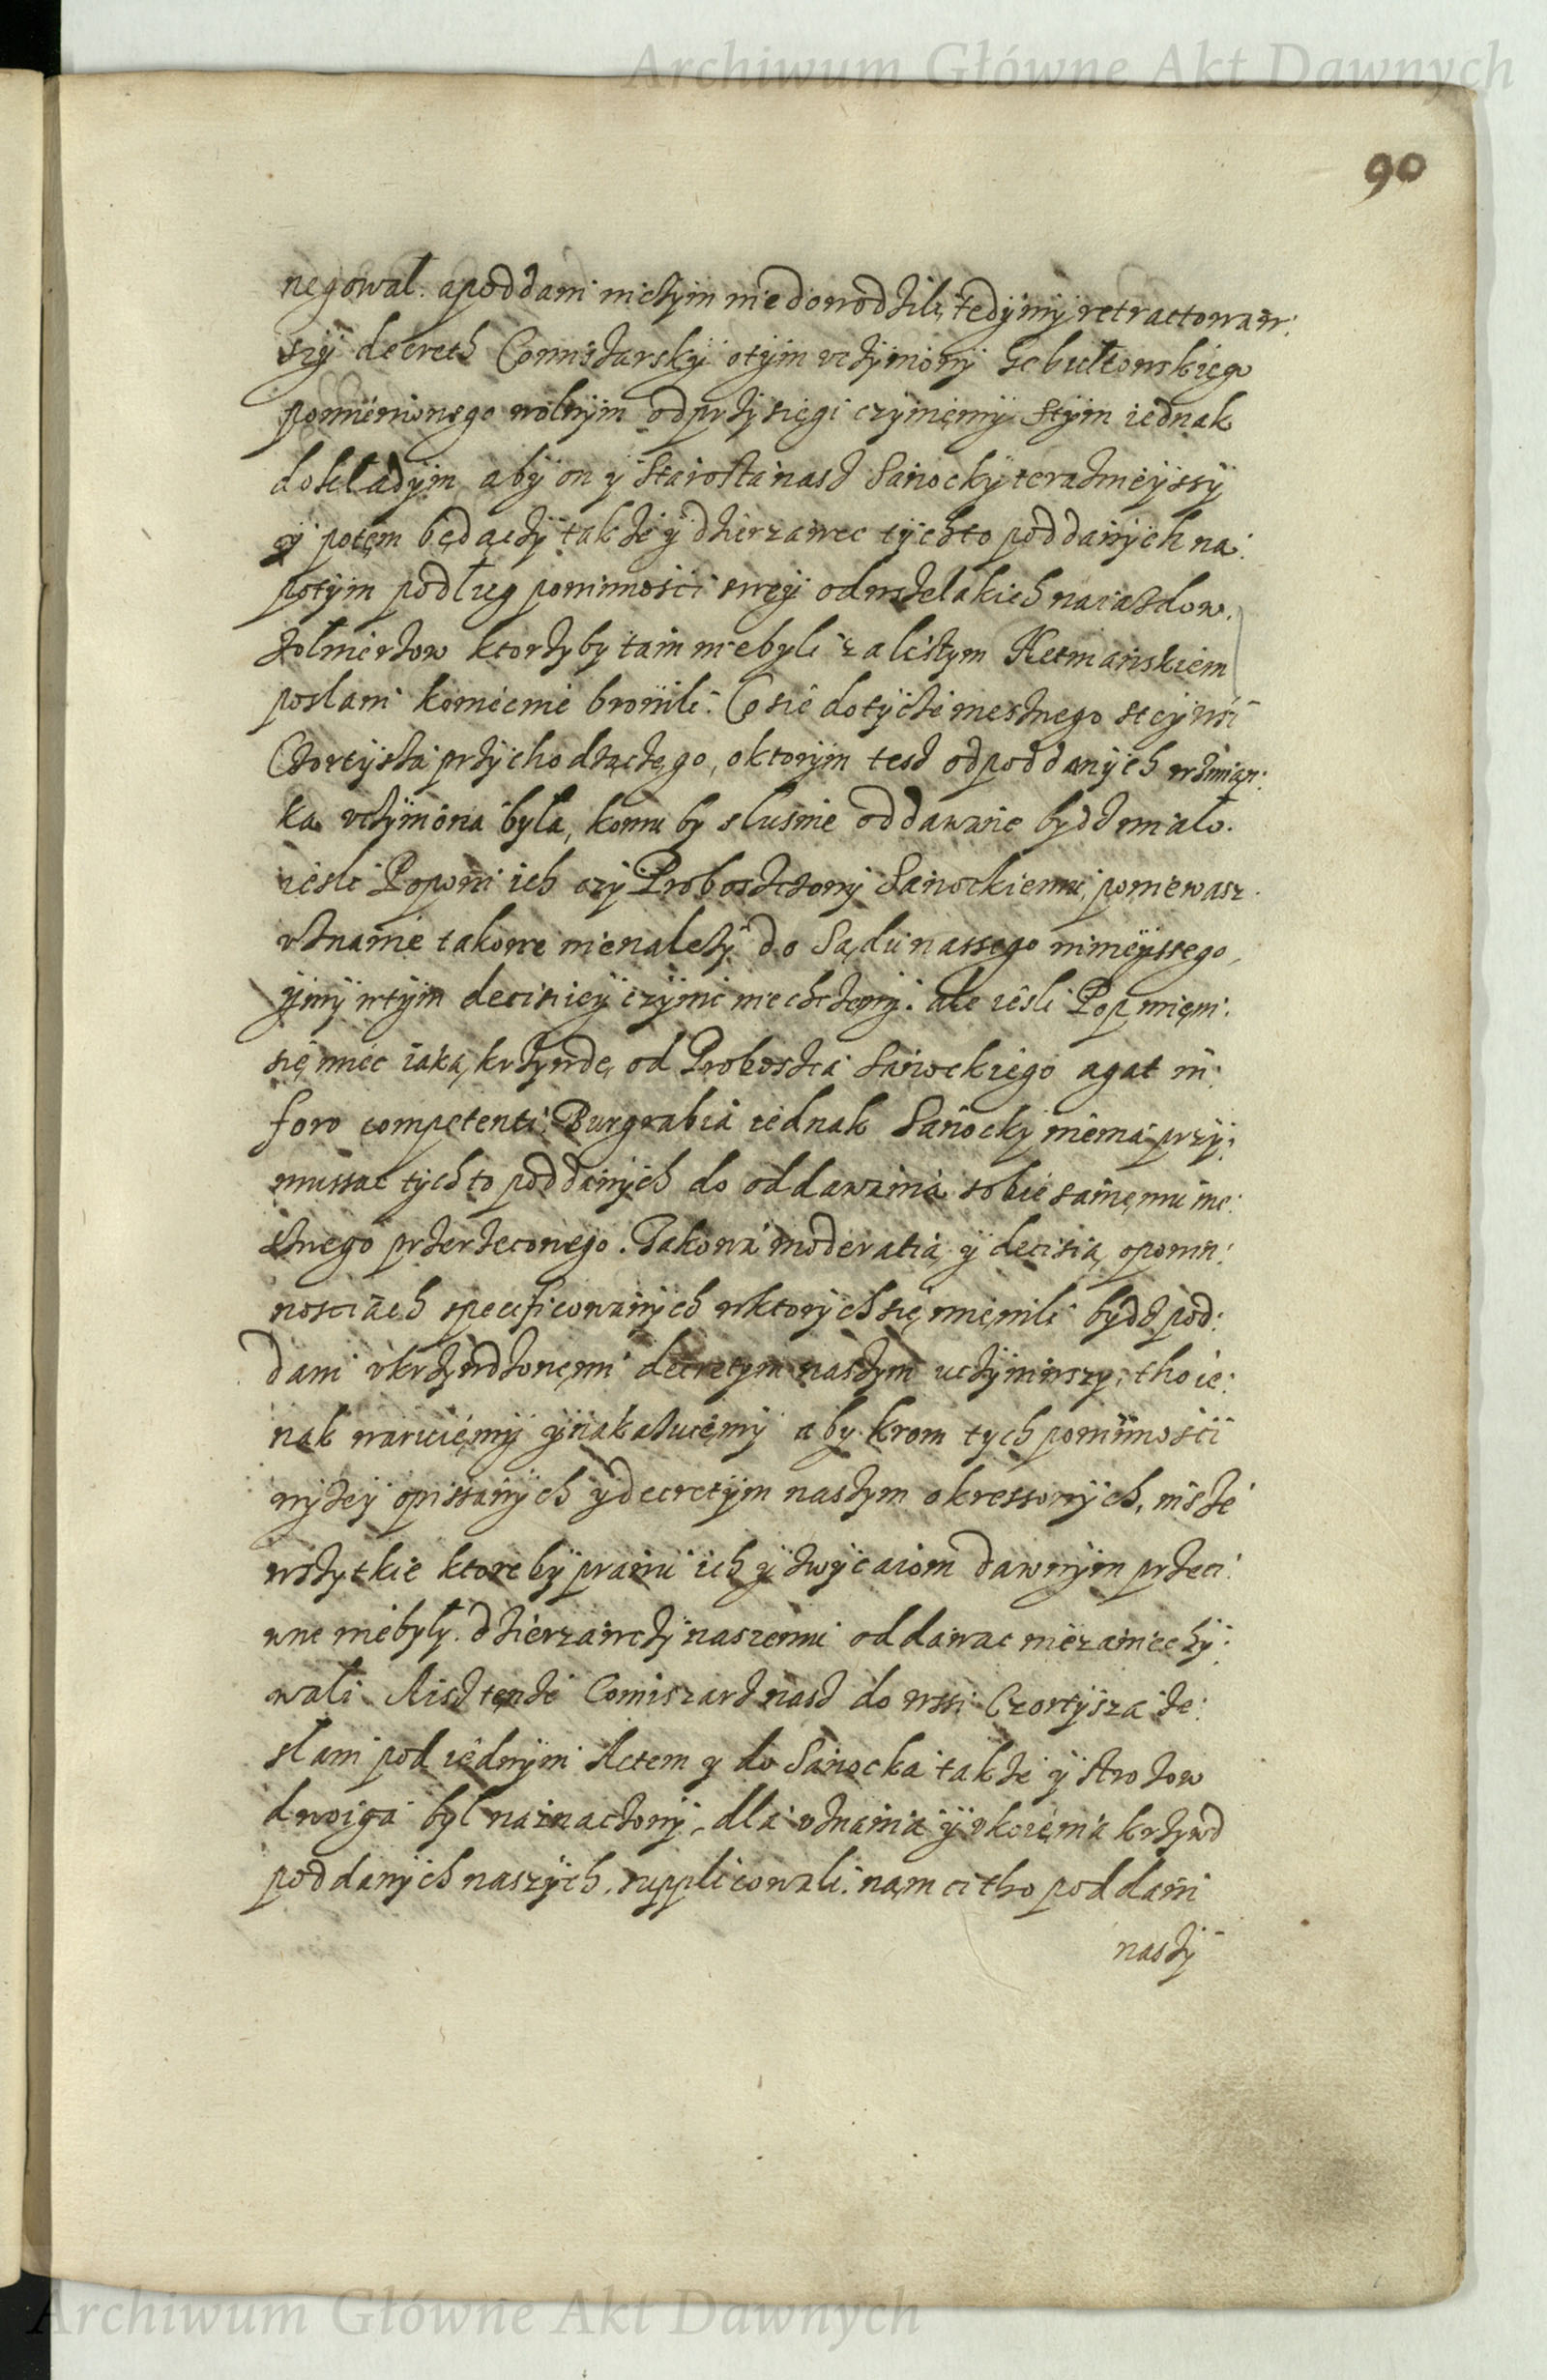 Archiwum Główne Akt Dawnych
90
negował. a poddani niczym nie dowodzili, tedy my retractowaw:
szy decreth Comiszarsky o tym vczyniony Gebułtowskiego
pomienionego wolnym od przysięgi czyniemy s tym iednak
dokładym aby on y Starosta nasz Sanocky teraznieyssy
y potem będączy takze y dzierzawec tychto poddanych na:
potym podług powinnosci swey od wszelakich naiazdow
zolnierzow ktorzyby tam nie byli za listym Hetmanskiem
poslani koniecnie bronili. Co sie dotycze mesznego s tey wsi
Czortysza przychodzączego, o ktorym tesz od poddanych wzmian:
ka vczyniona była, komu by slusnie oddawanie bydz miało.
iesli Popowi ich czy Proboszczowy Sanockiemu, poniewasz
vznanie takowe nie nalezy do Sądu nassego ninieyssego,
y my w tym decisiey czynic nie chczemy. ale iesli Pop mieni
się miec iaką krzywdę od Proboszcza Sanockiego agat in
foro competenti. Burgrabia iednak Sanocky nie ma przy:
mussac tychto poddanych do oddawania sobie samemu me:
sznego przerzeconego. Takową moderatią y decisią o powin:
nosciach specificowanych w ktorych się mienili bydz pod:
dani vkrzywdzonemi decretym naszym uczyniwszy, tho ie:
nak waruiemy y nakazuiemy aby krom tych powinnosci
wyzey opissanych y decretym naszym okressonych, insze
wszytkie ktore by prawu ich y zwycaiom dawnym przeci
wne nie były. dzierzawczy naszemu oddawac nie zaniechy:
wali. A isz tenze Comiszarz nasz do wsi Czortysza ze:
słani pod iednym Actem y do Sanocka takze y Strozow
dwoiga był naznaczony, dla vznania y vkoienia krzywd
poddanych naszych. supplicowali nam ci tho poddani
naszy
Archiwum Główne Akt Dawnych